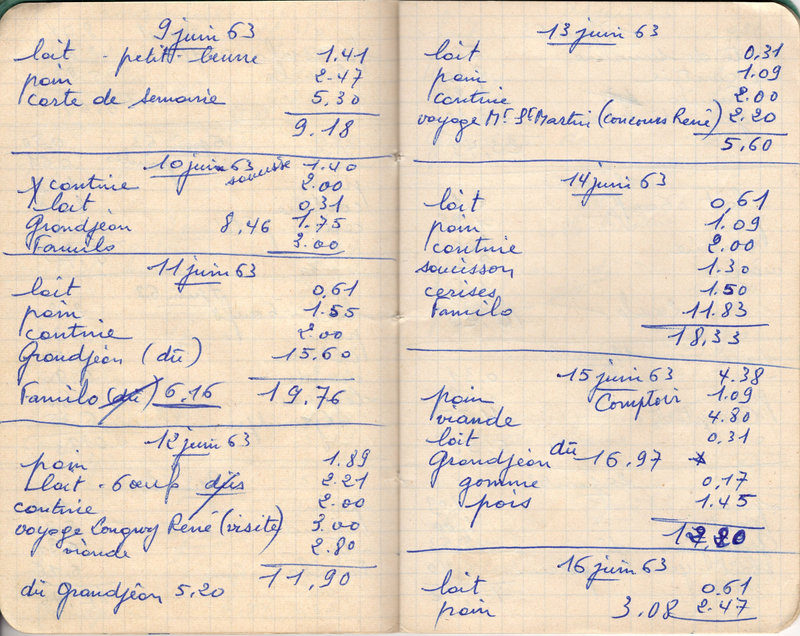 9 juin 63
lait - petit-beurre 1.41
pain 2.47
carte de semaine 5.30
9.18
10 juin 63 saucisse 1.40
x cantine 2.00
lait 0.31
Grandjéan 8,46 1.75
Familo 3.00
11 juin 63
lait 0,61
pain 1.55
cantine 2.00
Grandjéan (dû) 15.60
Familo (dû) 6,16 19,76
12 juin 63
pain 1.89
lait - 6 œufs dûs 2.21
cantine 2.00
voyage Longwy René (visite) 3.00
viande 2.80
11,90
dû Grandjéan 5,20
13 juin 63
lait 0,31
pain 1.09
cantine 2.00
voyage Mt St Martin (concours René) 2.20
5,60
14 juin 63
lait 0,61
pain 1.09
cantine 2.00
saucisson 1.30
cerises 1.50
Familo 11.83
18,33
15 juin 63 4.38
pain Comptoir 1.09
viande 4.80
lait 0.31
Grandjéan dû 16,97 x
gomme 0,17
pois 1.45
12,20
16 juin 63
lait 0.61
pain 3.08 2.47